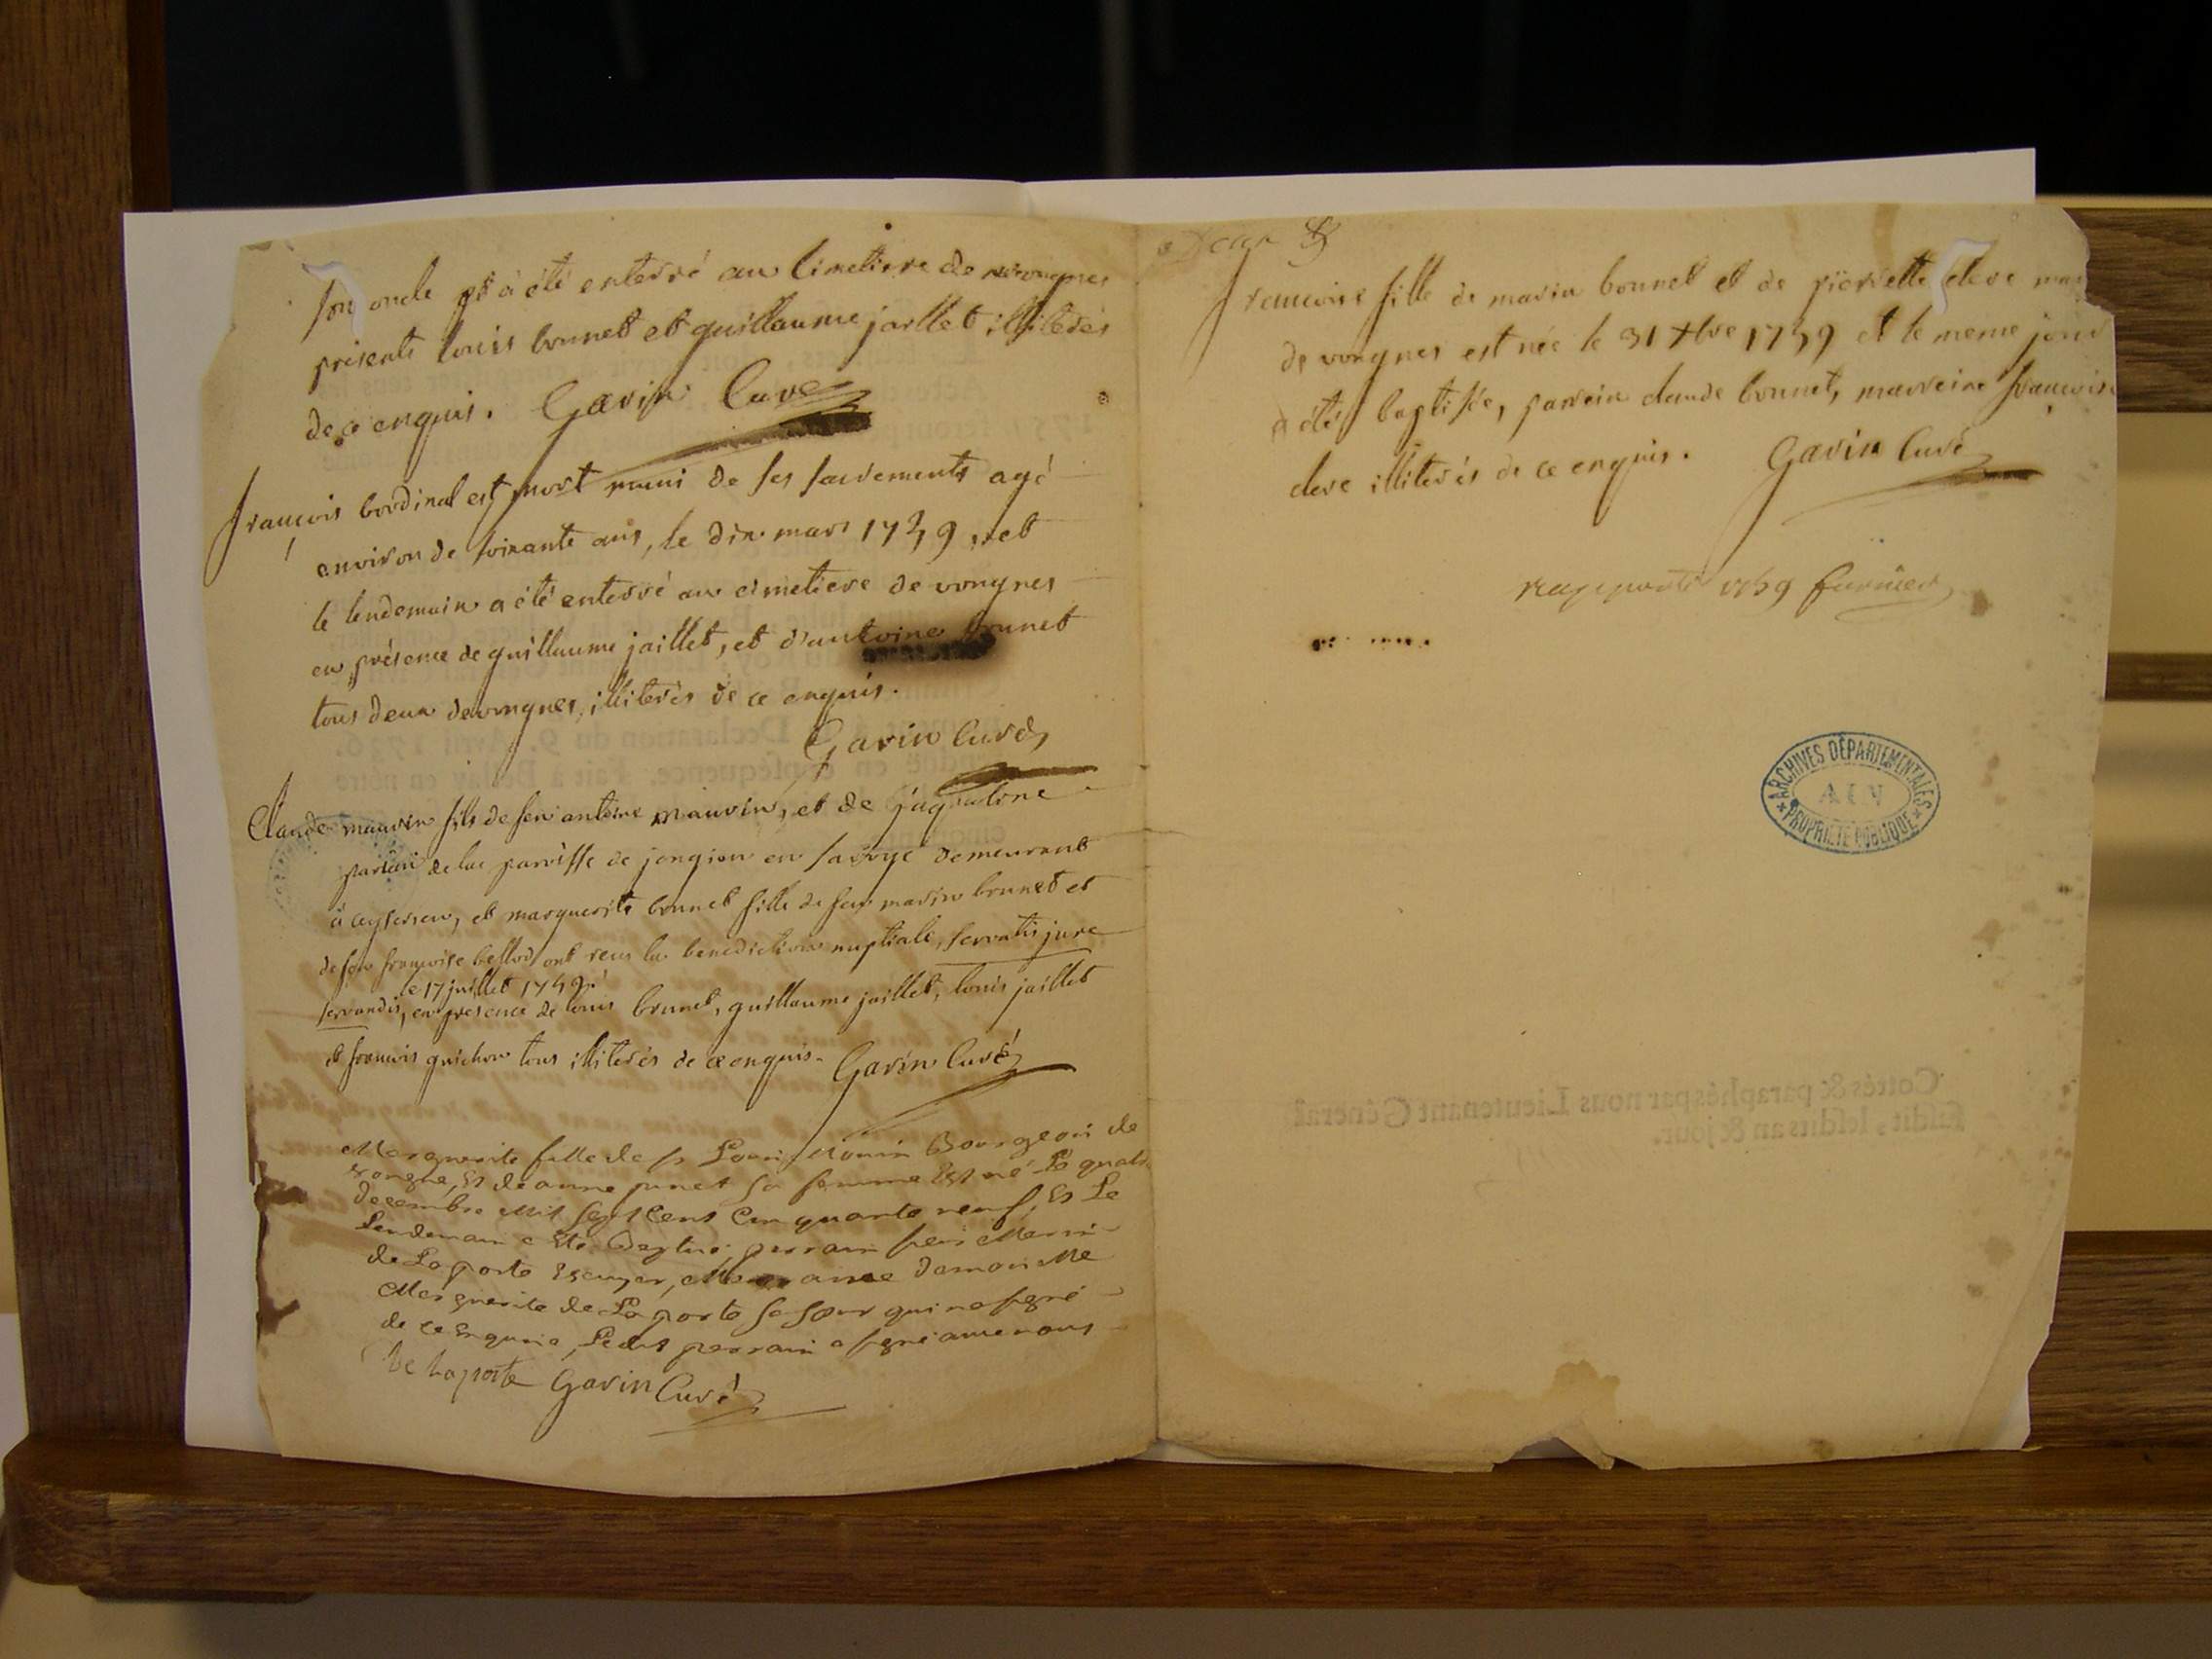 son oncle et à été enterré au cimetiere de vongnes
présents louis bonnet et guillaume jaillet illiterés
de ce enquis. Gavin Curé
françois bordinal est mort muni de ses sacrements agé
environ de soixante ans, le dix mars 1759, et
le lendemain a été enterré au cimetiere de vongnes
en présence de guillaume jaillet, et d'antoine brunet
tous deux de vongnes, illiterés de ce enquis.
Gavin Curé
Claude mauvin fils de feu antoine mauvin, et de jaqueline
de la paroisse de jongieu en savoye demeurant
à ceyserieu, et marguerite bonnet fille de feu marin brunet et
de feu françoise bessod ont reçu la benediction nuptiale, servatis jure
le 17 juillet 1759.
servandis, en presence de louis brunet, guillaume jaillet, louis jaillet
et françois guichon tous illiterés de ce enquis. Gavin Curé
Marguerite fille de sr Louis Bourgeois de
vongne, Et de anne junet sa femme Est né Le quatr
decembre Mil sept Cent Cinquante neuf, Et Le
Lendemain a Eté Baptisé, parrain
de Laporte Escuyer, Marainne damoiselle
Marguerite de Laporte sa sœur qui na signé
de ce Enquise, Ledit parrain a signé avec nous
De Laporte Gavin Curé
françoise fille de marin bonnet et de pierrette clere
de vongnes est née le 31 xbre 1759 et le meme jour
a été baptisée, parrein claude bonnet, marreine françoise
clere illiterés de ce enquis. Gavin Curé
rapporté 1759
ARCHIVES DÉPARTEMENTALES
AIN
PROPRIÉTÉ PUBLIQUE
Cottés & paraphés par nous Lieutenant Général
susdit, lesdits an & jour.